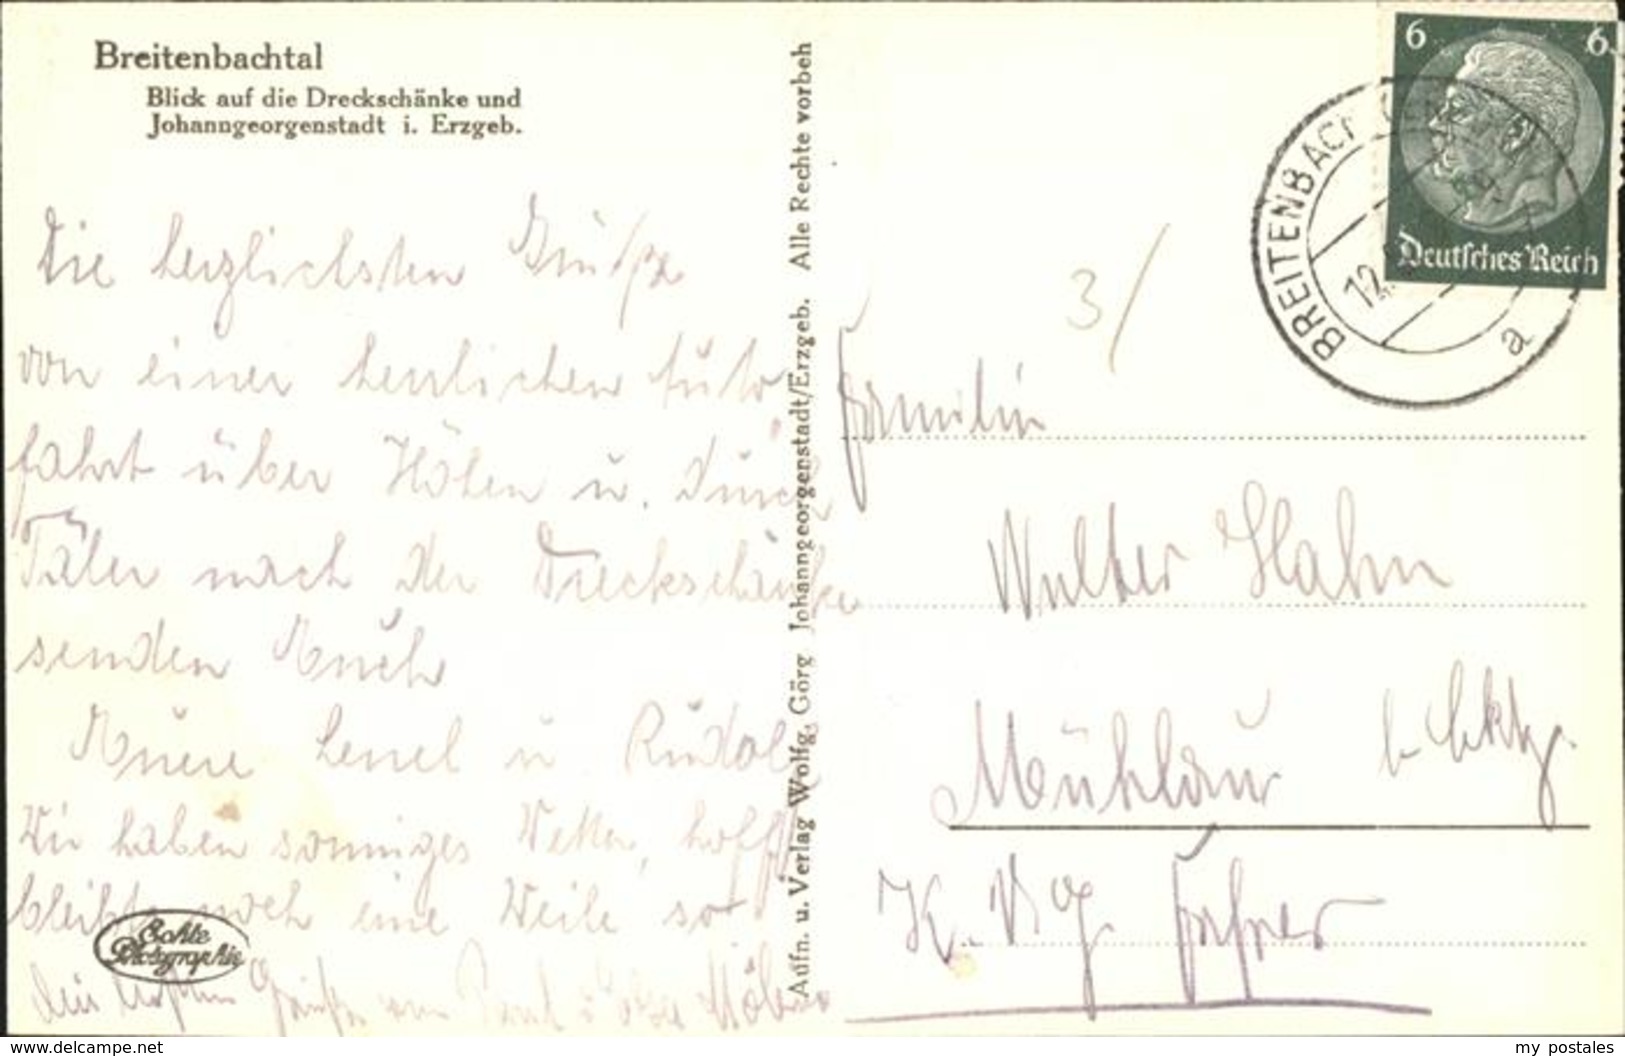 Breitenbachtal
Blick auf die Dreckschänke und
Johanngeorgenstadt i. Erzgeb.
Die herzlichsten Grüße
von einer herrlichen Auto
fahrt über Höhen u. durch
Täler nach der Dreckschänke
senden Euch
Eure Lenel u Rudolf
Wir haben sonniges Wetter, hoff
bleibts noch eine Weile so
Grüße von Paul
Echte
Photographie
Aufn. u. Verlag Wolfg. Görg Johanngeorgenstadt/Erzgeb. Alle Rechte vorbeh
6 6
Deutsches Reich
BREITENBACH
12.
a
3/
Familie
Walter Hahn
Mühlau b
K.
www.delcampe.net
my_postales